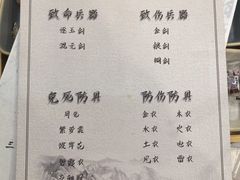 致命兵器 致伤兵器
逐玉剑 金剑
混元剑 铁剑
铜剑
免死防具 防伤防具
金衣 木衣
紫芳蕊 水衣 火衣
彼岸花 土衣 电衣
风衣 雷衣
三